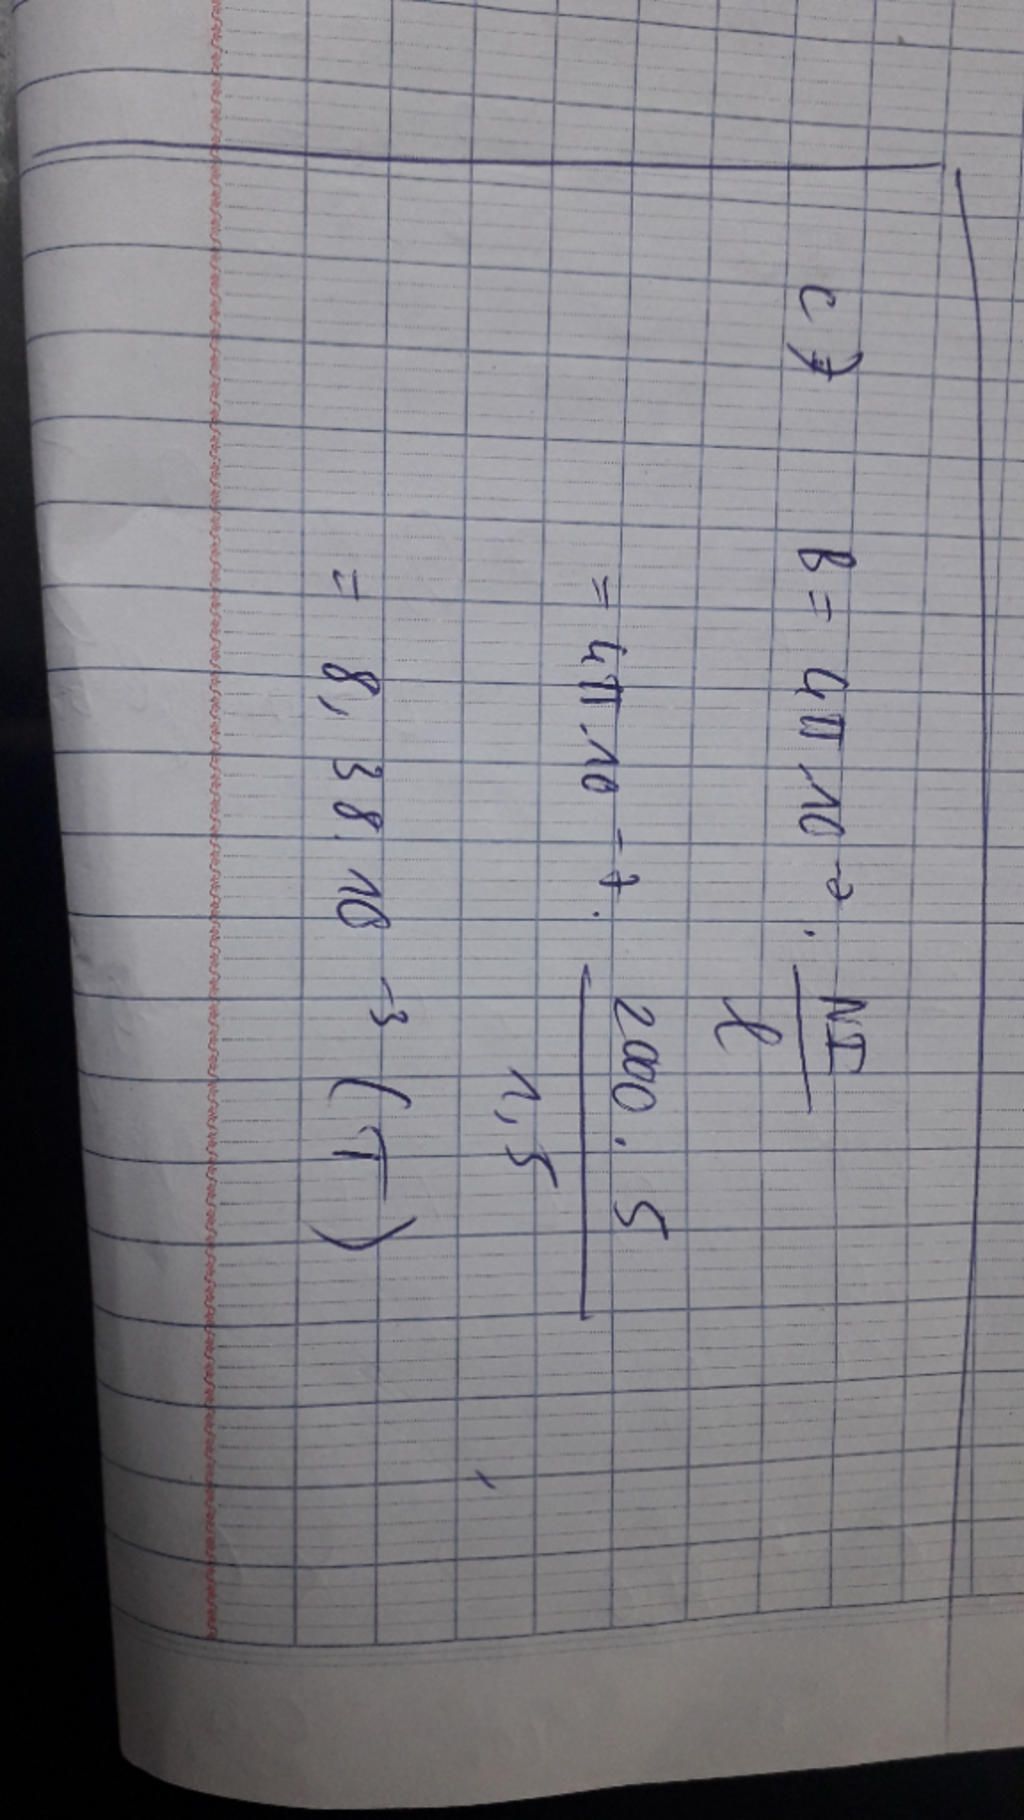 c) B = 4π.10^-7 . NI / l
= 4π.10^-7 . 2000.5 / 1,5
= 8,38.10^-3 (T)